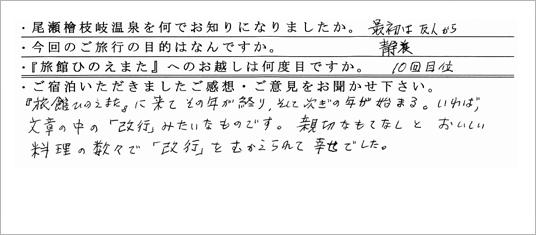 ・尾瀬檜枝岐温泉を何でお知りになりましたか。 最初は友人から
・今回のご旅行の目的はなんですか。 静養
・『旅館ひのえまた』へのお越しは何度目ですか。 10回目位
・ご宿泊いただきましたご感想・ご意見をお聞かせ下さい。
『旅館ひのえまた』に来てその年が終り、そして次ぎの年が始まる。いわば、
文章の中の「改行」みたいなものです。親切なもてなしと おいしい
料理の数々で「改行」をむかえられて幸せでした。